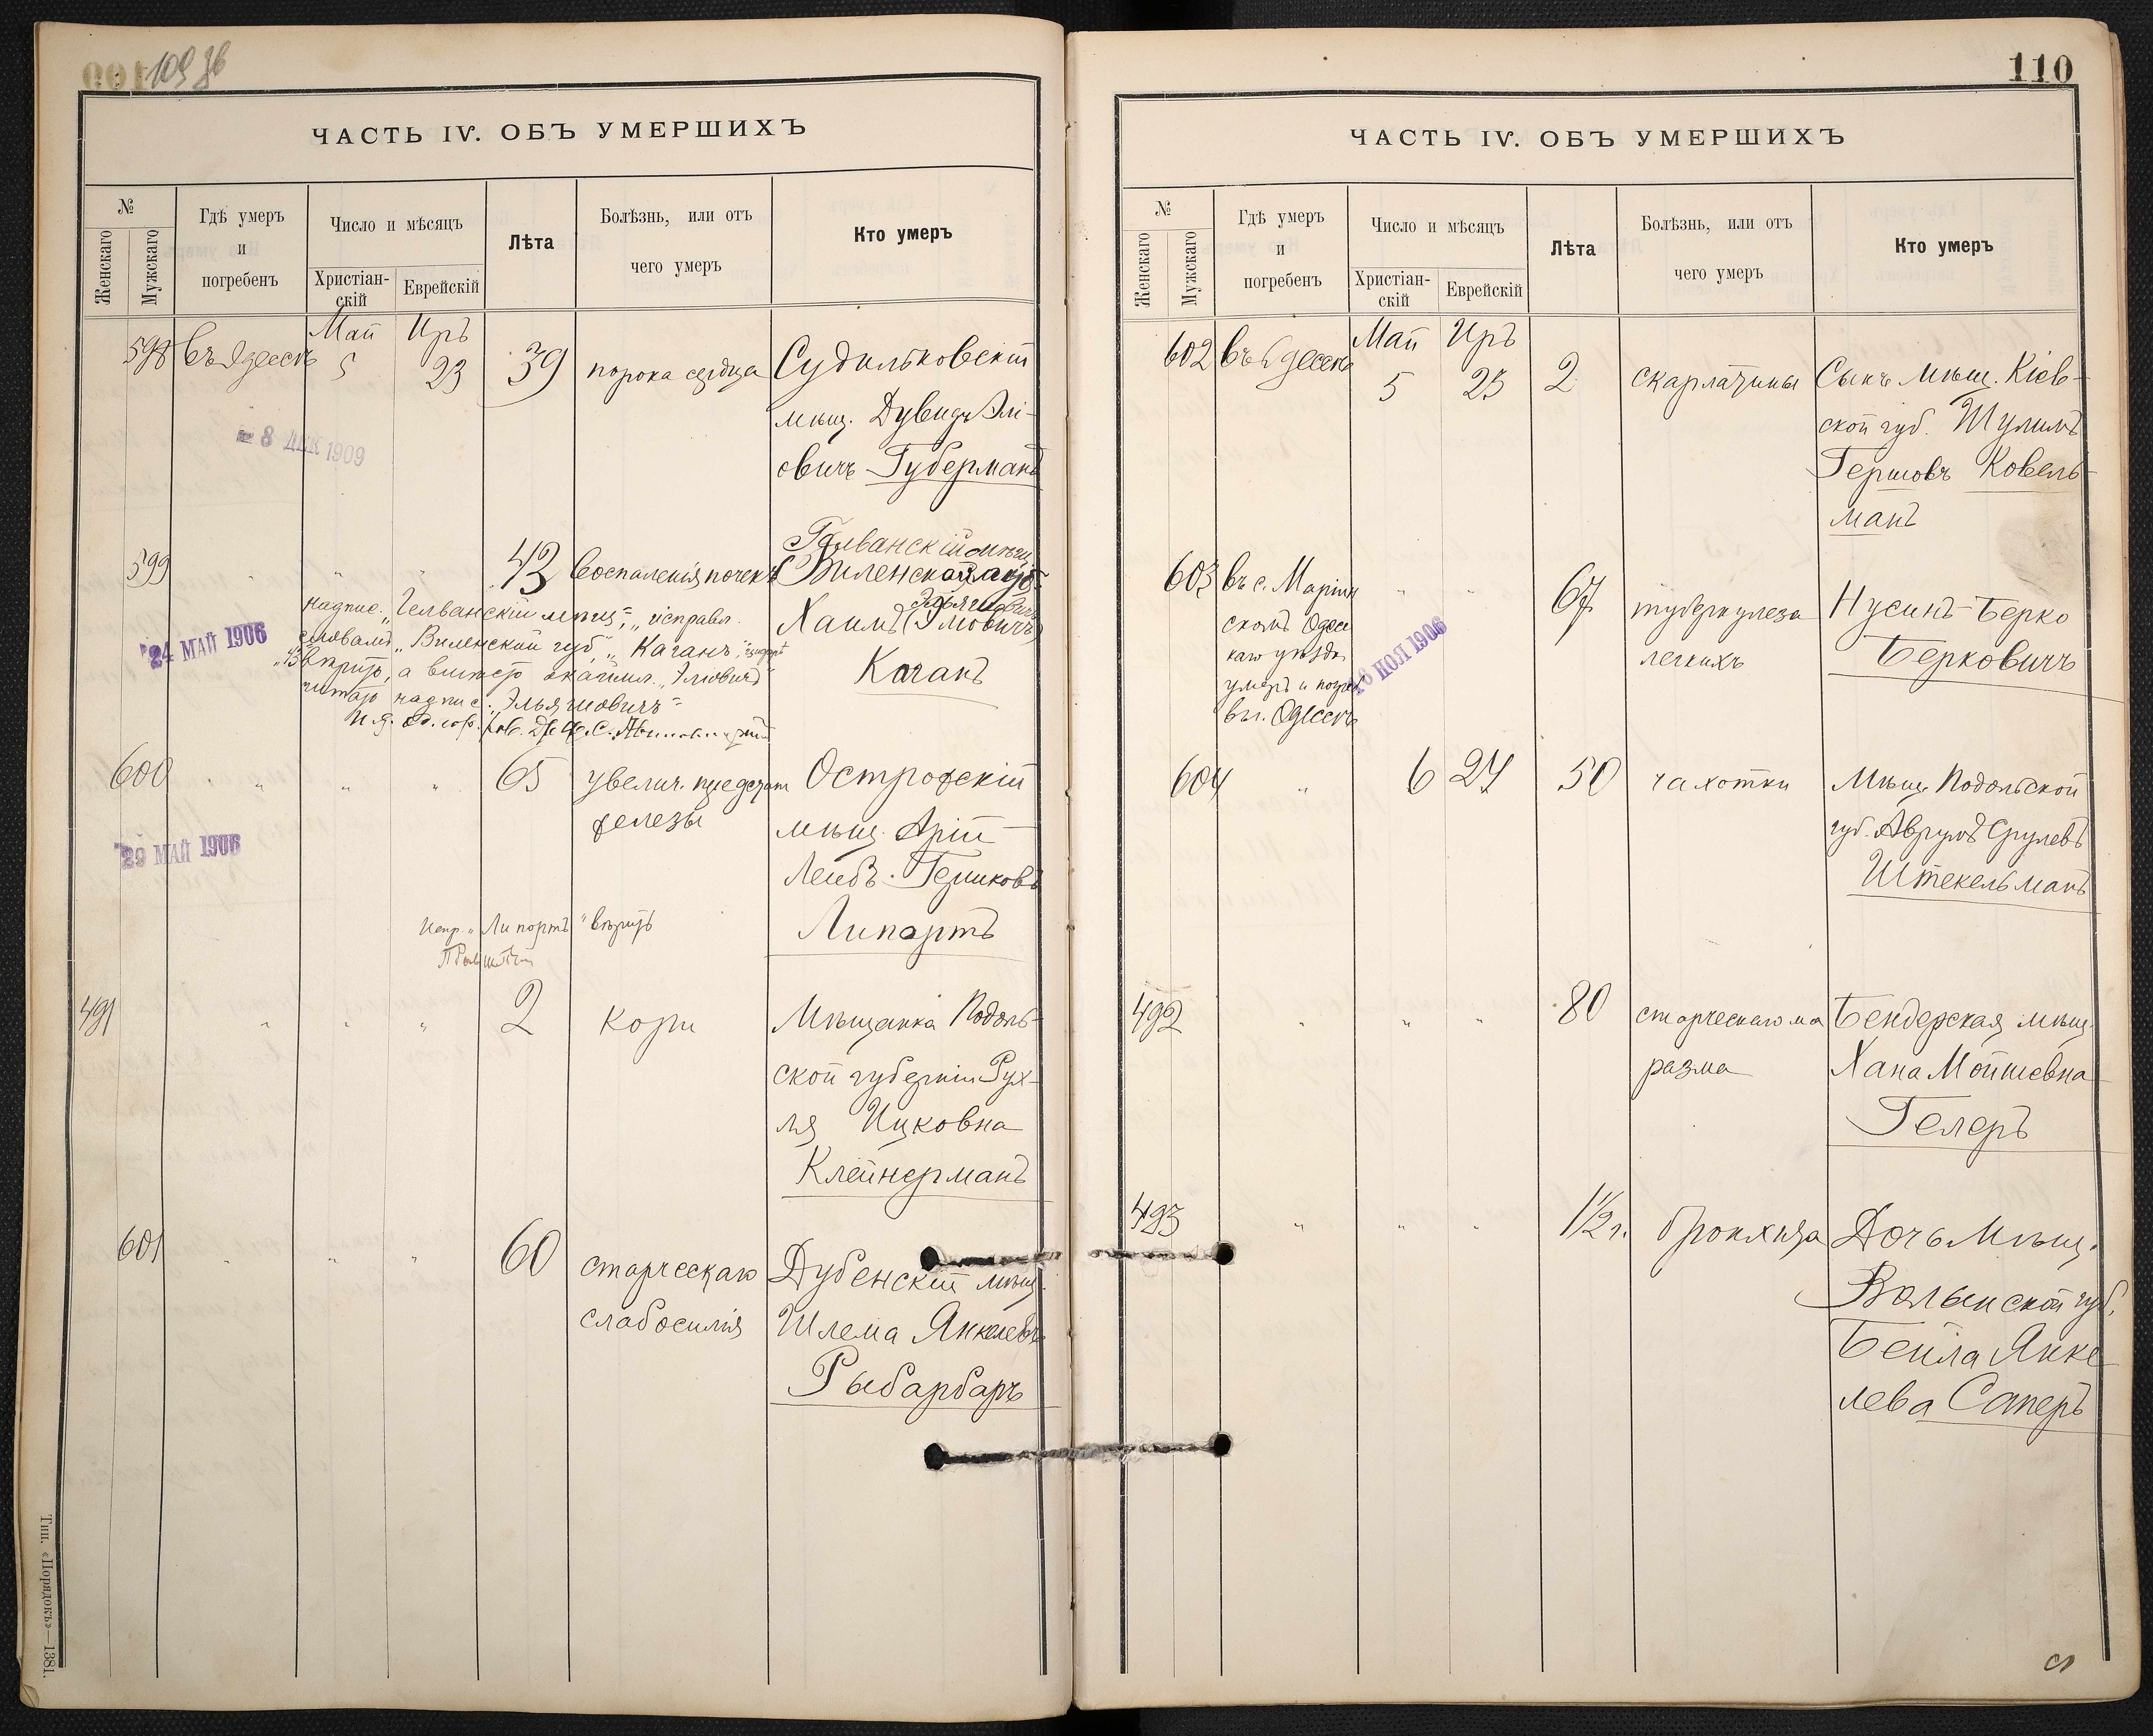 109 об
ЧАСТЬ IV. ОБЪ УМЕРШИХЪ
№
Женскаго
Мужскаго
Гдѣ умеръ
и
погребенъ
Число и мѣсяцъ
Христіан-
скій
Еврейскій
Лѣта
Болѣзнь, или отъ
чего умеръ
Кто умеръ
598 Въ Одессѣ Май 5 Иръ 23 39 порока сердца Судилковскій
мѣщ. Дувидъ Элі-
овичъ Губерманъ
8 ДЕК 1909
599 " " " 43 Воспаленія почекъ Гелванскій мѣщ.
(Виленской губ.
Эльяшовичъ
Хаимъ (Эліовичъ)
Каганъ
надпис. „Гелванскій мѣщ.", исправл.
„Виленской губ.", „Каганъ",
вѣрить, а вмѣсто „Эліовичъ"
читать надпис. „Эльяшовичъ"
24 МАЙ 1906
600 " " " " 65 увелич. предстат.
железы
Острогскій
мѣщ. Арій-
Лейбъ Гершковъ
Липортъ
29 МАЙ 1906
Испр. „Липортъ" вѣрить
491 " " " 2 кори Мѣщанка Подоль-
ской губерніи Рух-
ля Ицковна
Клейнерманъ
601 " " " 60 старческаго
слабосилія
Дубенскій мѣщ.
Шлема Янкелевъ
Рыбарбаръ
Тип. «Порядокъ»—1381.
110
ЧАСТЬ IV. ОБЪ УМЕРШИХЪ
№
Женскаго
Мужскаго
Гдѣ умеръ
и
погребенъ
Число и мѣсяцъ
Христіан-
скій
Еврейскій
Лѣта
Болѣзнь, или отъ
чего умеръ
Кто умеръ
602 Въ Одессѣ Май 5 Иръ 23 2 скарлатины Сынъ мѣщ. Кіев-
ской губ. Шулимъ
Гершовъ Ковель-
манъ
603 въ с. Маріин
скомъ Одес
каго уѣзда
умеръ и погреб.
въ г. Одессѣ
" " 67 туберкулеза
легкихъ
Нусинъ-Берко
Берковичъ
16 ІЮЛ 1906
604 " 6 24 50 чахотки Мѣщ. Подольской
губ. Аврумъ Срулевъ
Штекельманъ
492 " " " 80 старческаго ма
разма
Бендерская мѣщ.
Хана Мойшевна
Гелеръ
493 " " " 1½ г. бронхита Дочь мѣщ.
Волынской губ.
Бейла Янке
лева Саперъ